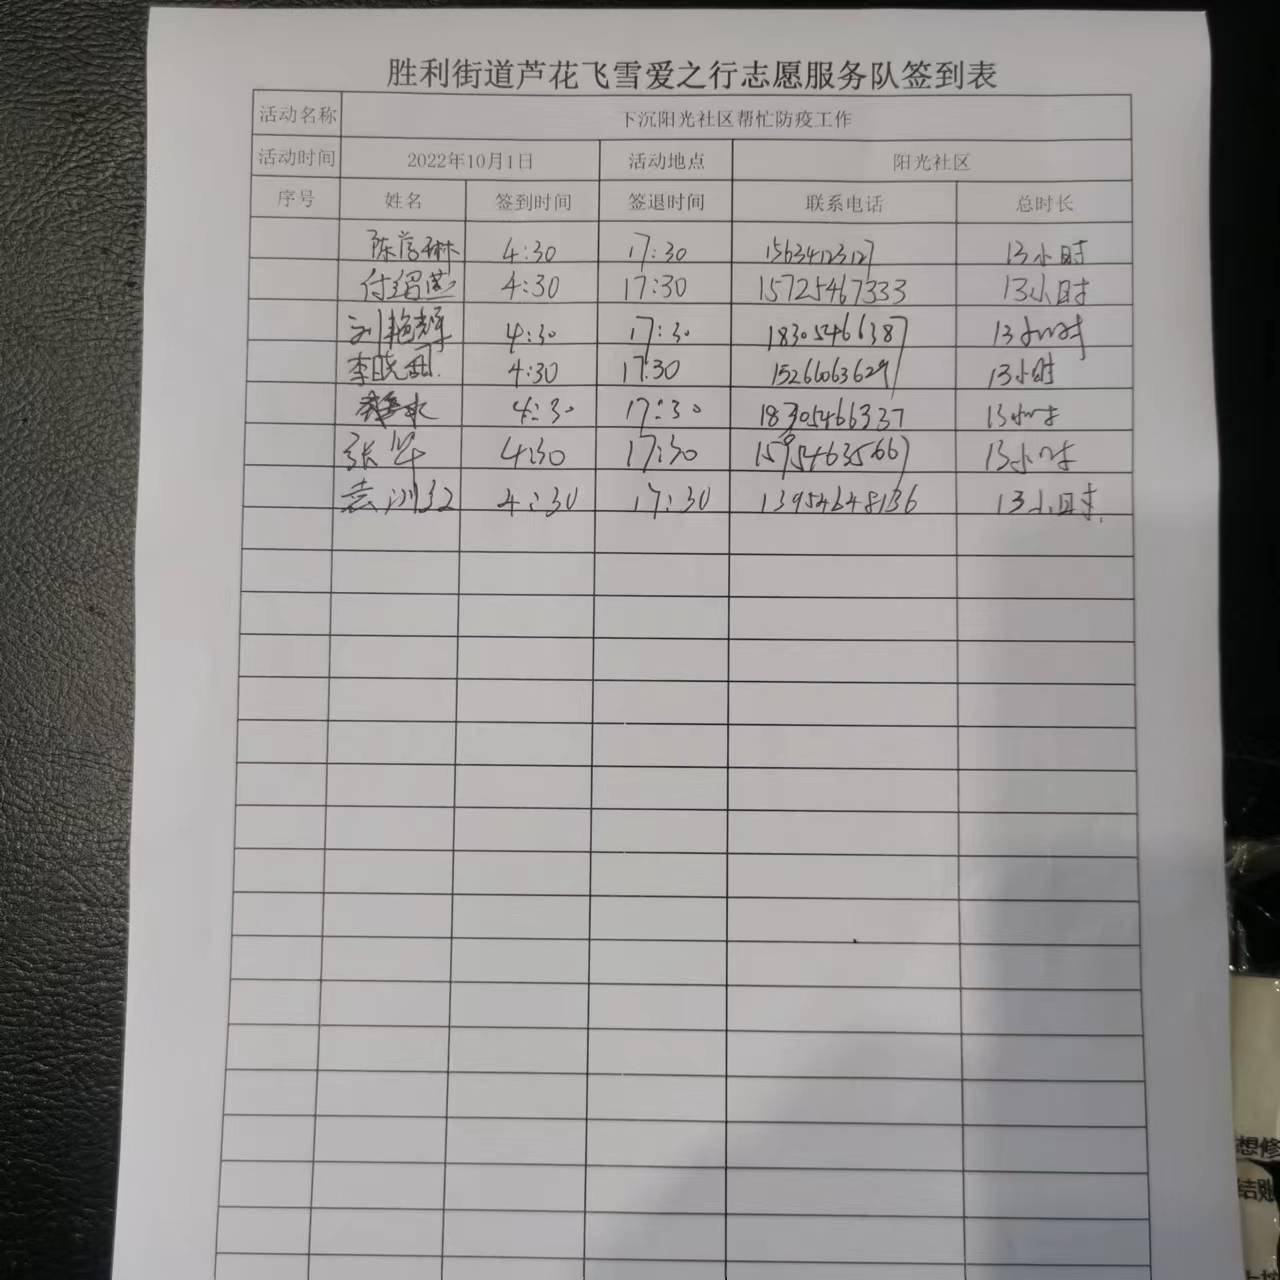 胜利街道芦花飞雪爱之行志愿服务队签到表
活动名称 下沉阳光社区帮忙防疫工作
活动时间 2022年10月1日 活动地点 阳光社区
序号 姓名 签到时间 签退时间 联系电话 总时长
4:30 17:30 15634123127 13小时
付绍燕 4:30 17:30 15725467333 13小时
刘艳辉 4:30 17:30 18305466387 13小时
李晓 4:30 17:30 15266063629 13小时
4:30 17:30 18305466337 13小时
张华 4:30 17:30 15954635667 13小时
袁 4:30 17:30 13954648136 13小时.
想修
结账